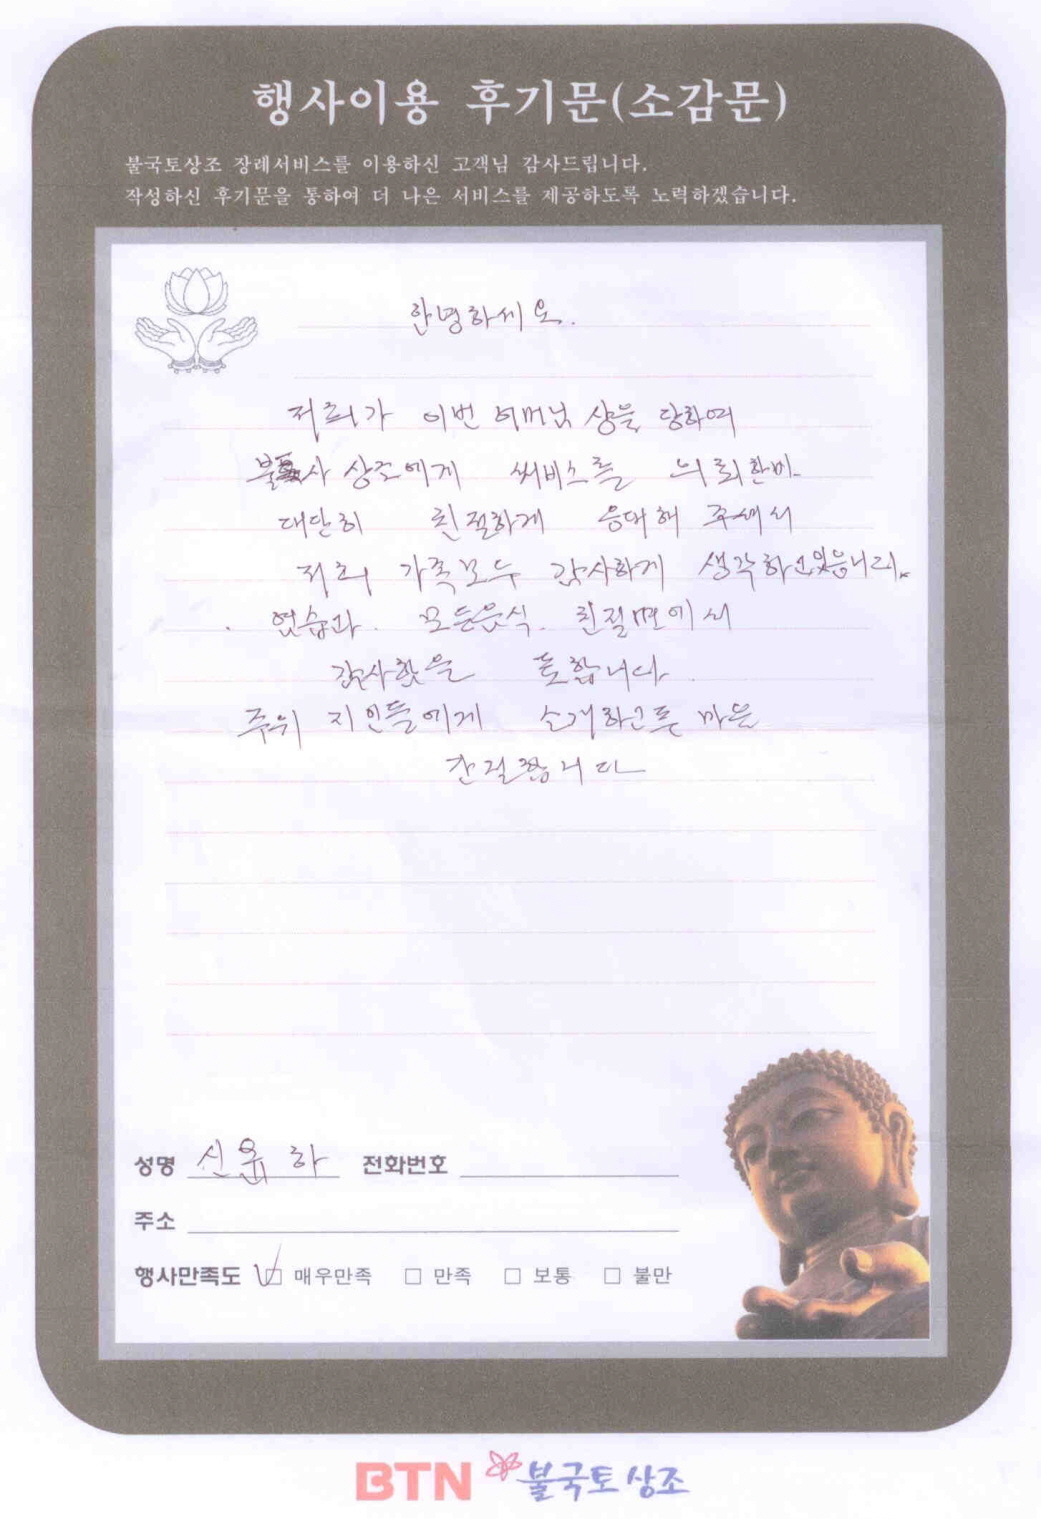 행사이용 후기문(소감문)
불국토상조 장례서비스를 이용하신 고객님 감사드립니다.
작성하신 후기문을 통하여 더 나은 서비스를 제공하도록 노력하겠습니다.
안녕하세요.
저희가 이번 어머님 상을 당하여
상조에게 써비스를 의뢰한바
대단히 친절하게 응대해 주셔서
저희 가족모두 감사하게 생각하고있읍니다.
모든음식. 친절면에서
감사함을 표합니다.
주위 지인들에게 소개하고픈 마음
간절합니다
성명 신용하 전화번호
주소
행사만족도 ☑ 매우만족 □ 만족 □ 보통 □ 불만
BTN 불국토상조